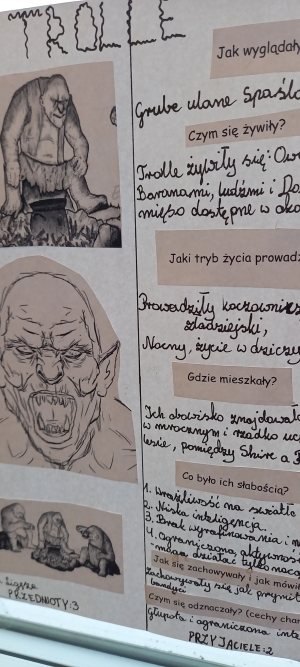 TROLLE
Jak wyglądały
Grube ulane
Czym się żywiły?
Trolle żywiły się: Owc
Baranami, ludźmi i
mięso dostępne w oko
Jaki tryb życia prowadz
Prowadziły koczowniczo
złodziejski,
Nocny, życie w dziczy
Gdzie mieszkały?
Ich obowisko znajdowało
w mrocznym i rzadko ucz
lesie, pomiędzy Shire a
Co było ich słabością?
1. Wrażliwość na światło
2. Niska inteligencja.
3. Brak wyrafinowania i m
4. Ograniczona aktywność
działać tylko nocą
Jak się zachowywały i jak mówił
zachowywały się jak prymit
bandyci
Czym się odznaczały? (cechy char
głupota i ograniczona int
PRZEDMIOTY:3
PRZYJACIELE:2